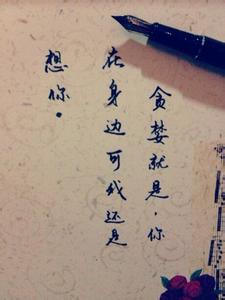 贪婪就是,你
在身边可我还是
想你。